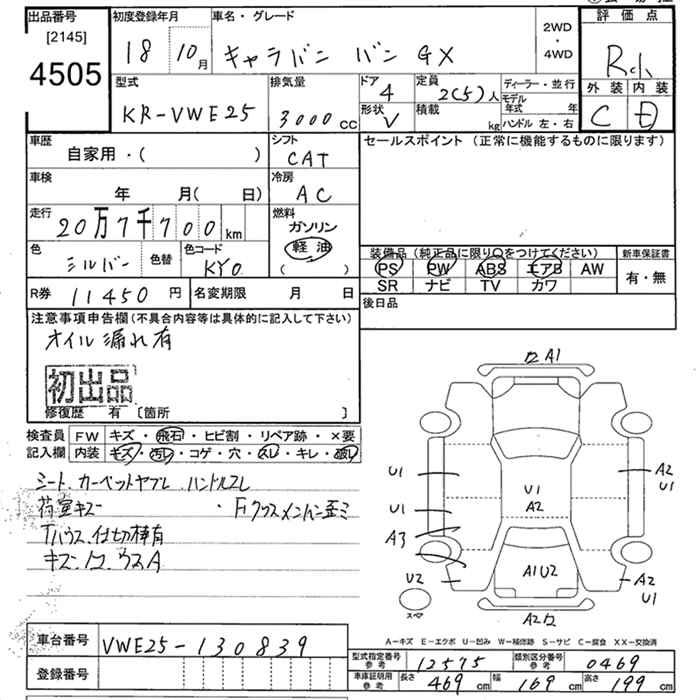 出品番号
[2145]
4505
初度登録年月
18 10月
車名・グレード
キャラバン バン GX
2WD
・
4WD
評価点
外装 内装
C D
型式
KR-VWE25
排気量
3000cc
ドア
4
形状
V
定員
2(5)人
積載
kg
ディーラー・並行
モデル年式 年
ハンドル 左・右
車歴
自家用・( )
シフト
CAT
セールスポイント (正常に機能するものに限ります)
車検
年 月( 日)
冷房
AC
走行
20万7千700km
燃料
ガソリン
軽油
( )
色
シルバー
色替
色コード
KY0
装備品(純正品に限り○をつけてください)
PS PW ABS エアB AW
SR ナビ TV カワ
新車保証書
有・無
R券 11450円
名変期限 月 日
後日品
注意事項申告欄(不具合内容等は具体的に記入して下さい)
オイル漏れ有
初出品
修復歴 有 [箇所 ]
検査員
記入欄
FW キズ・飛石・ヒビ割・リペア跡・×要
内装 キズ・汚レ・コゲ・穴・スレ・キレ・破レ
シート、カーペットヤブレ ハンドルスレ
荷室キズ
・Fクロスメンバー歪ミ
Tハウス、仕切棒有
A1
U1
U1
A3
U2
U1
A2
A1U2
A2
U1
A2
U1
スペア
A2
A－キズ E－エクボ U－凹み W－補修跡 S－サビ C－腐食 XX－交換済
車台番号
VWE25-130839
登録番号
型式指定番号
参考
12575
類別区分番号
参考
0469
車庫証明用
参考
長さ 469cm 幅 169cm 高さ 199cm